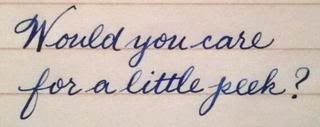 Would you care
for a little peek?